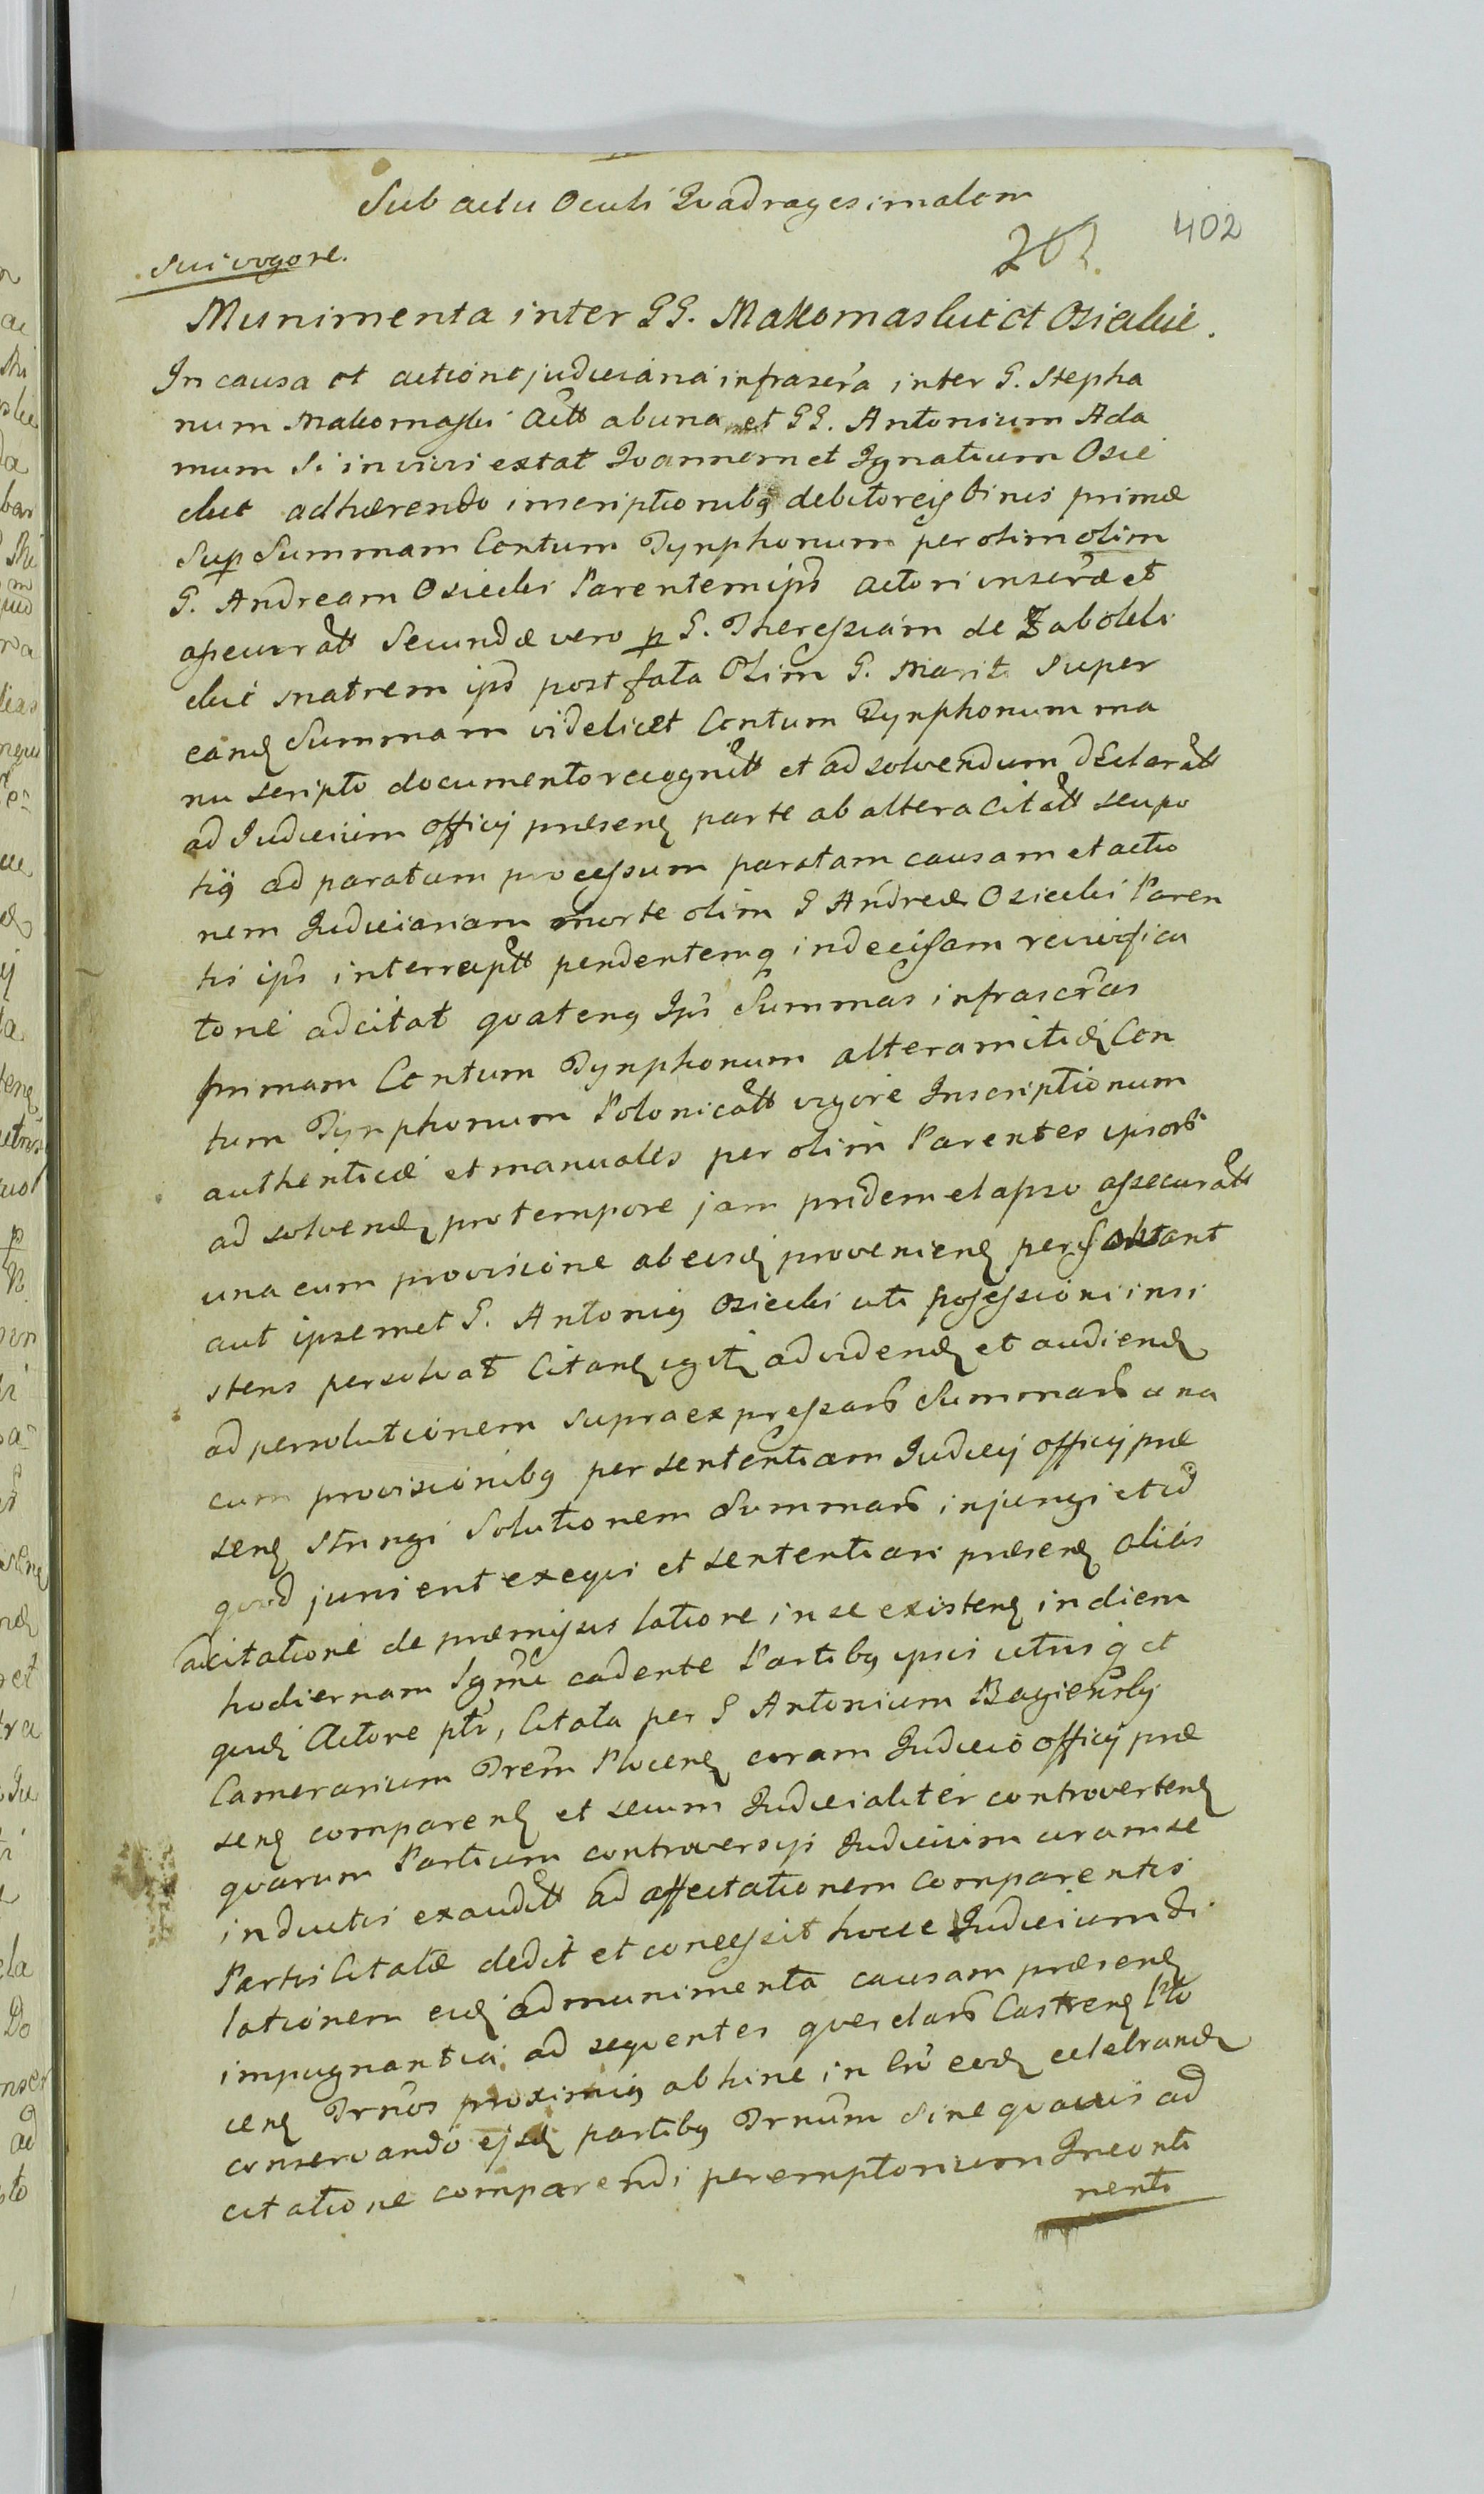 Sub actu Oculi Quadragesimalem
402
203.
sui vigore.
Munimenta inter GG. Makomaskie et Osieckie.
In causa et actione judiciaria infrascr̃a inter G. Stepha
num Makomaski Act̃t ab una et GG. Antonium Ada
mum Si in vivis extat Ioannem et Ignatium Osie
ckie adhærendo inscriptionibq debitoreis binis primæ
Sup Summam Centum Tynphonum per olim olim
G. Andream Osiecki Parentem ips̃ actori inscr̃æ et
assecurat̃t Secundæ vero p G. Theressiam de Zabokli
ckie Matrem ips̃ post fata Olim G. Mariti super
eand Summam videlicet Centum Tynphonum ma
nu scripto documento recognit̃t et ad solvendum declarat̃t
ad Judicium officij præsens parte ab altera citat̃t seu po
tiq ad paratum processum paratam causam et actio
nem Judiciariam morte olim G Andreæ Osiecki Paren
tis ips̃ interrept̃t pendentemq indecisam revivifica
tone adcitat quatenq Ips̃ Summas infrascr̃as
primam Centum Tynphonum alteram itid Cen
tum Tynphonum Polonicat̃t vigore Inscriptionum
authenticæ et manuales per olim Parentes ipsor
ad solvend pro tempore jam pridem elapso assecurat̃t
una cum provisione ab eisd provenien persolvant
aut ipsemet G. Antoniq Osiecki uti possessioni insi
stens persolvat Citand igit ad videnđ et audiend
ad persolutionem supra expressar Summar una
cum provisionibq per sententiam Judicij officij præ
sen stringi Solutionem Summar injungi et id
quod juris erit exequi et sententiari præsen aliàs
adcitatione de præmissis latiore in se existen in diem
hodiernam lgm̃e cadente Partibq ipsis utrisq et
quid Actore ptr̃, Citata per G Antonium Bagienski
Camerarium Trem̃ Plocen coram Judicio officij præ
sen comparen et secum Judicialiter controverten
quarum Partium controversijs Judicium coram se
inductis exaudit̃t ad affectationem comparentis
Partis Citatæ dedit et concessit hocce Judicium di
lationem eid ad munimenta causam præsen
impugnantia ad sequentes querelar Castren Plo
cen Trnos proximiq abhinc in Cr̃o eod celebrand
conservando ejsd partibq Trnum sine quavis ad
citatione comparendi peremptorium Inconti
nenti